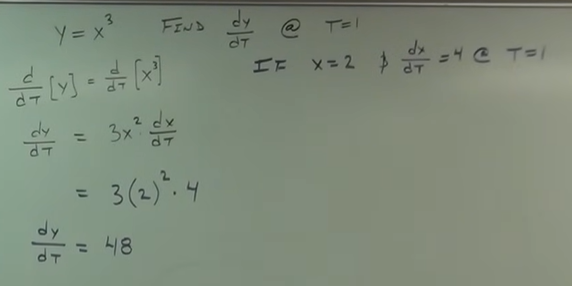 Y = x³ FIND dy/dT @ T=1
IF x=2 & dx/dT = 4 @ T=1
d/dT [Y] = d/dT [x³]
dy/dT = 3x² · dx/dT
= 3(2)² · 4
dy/dT = 48